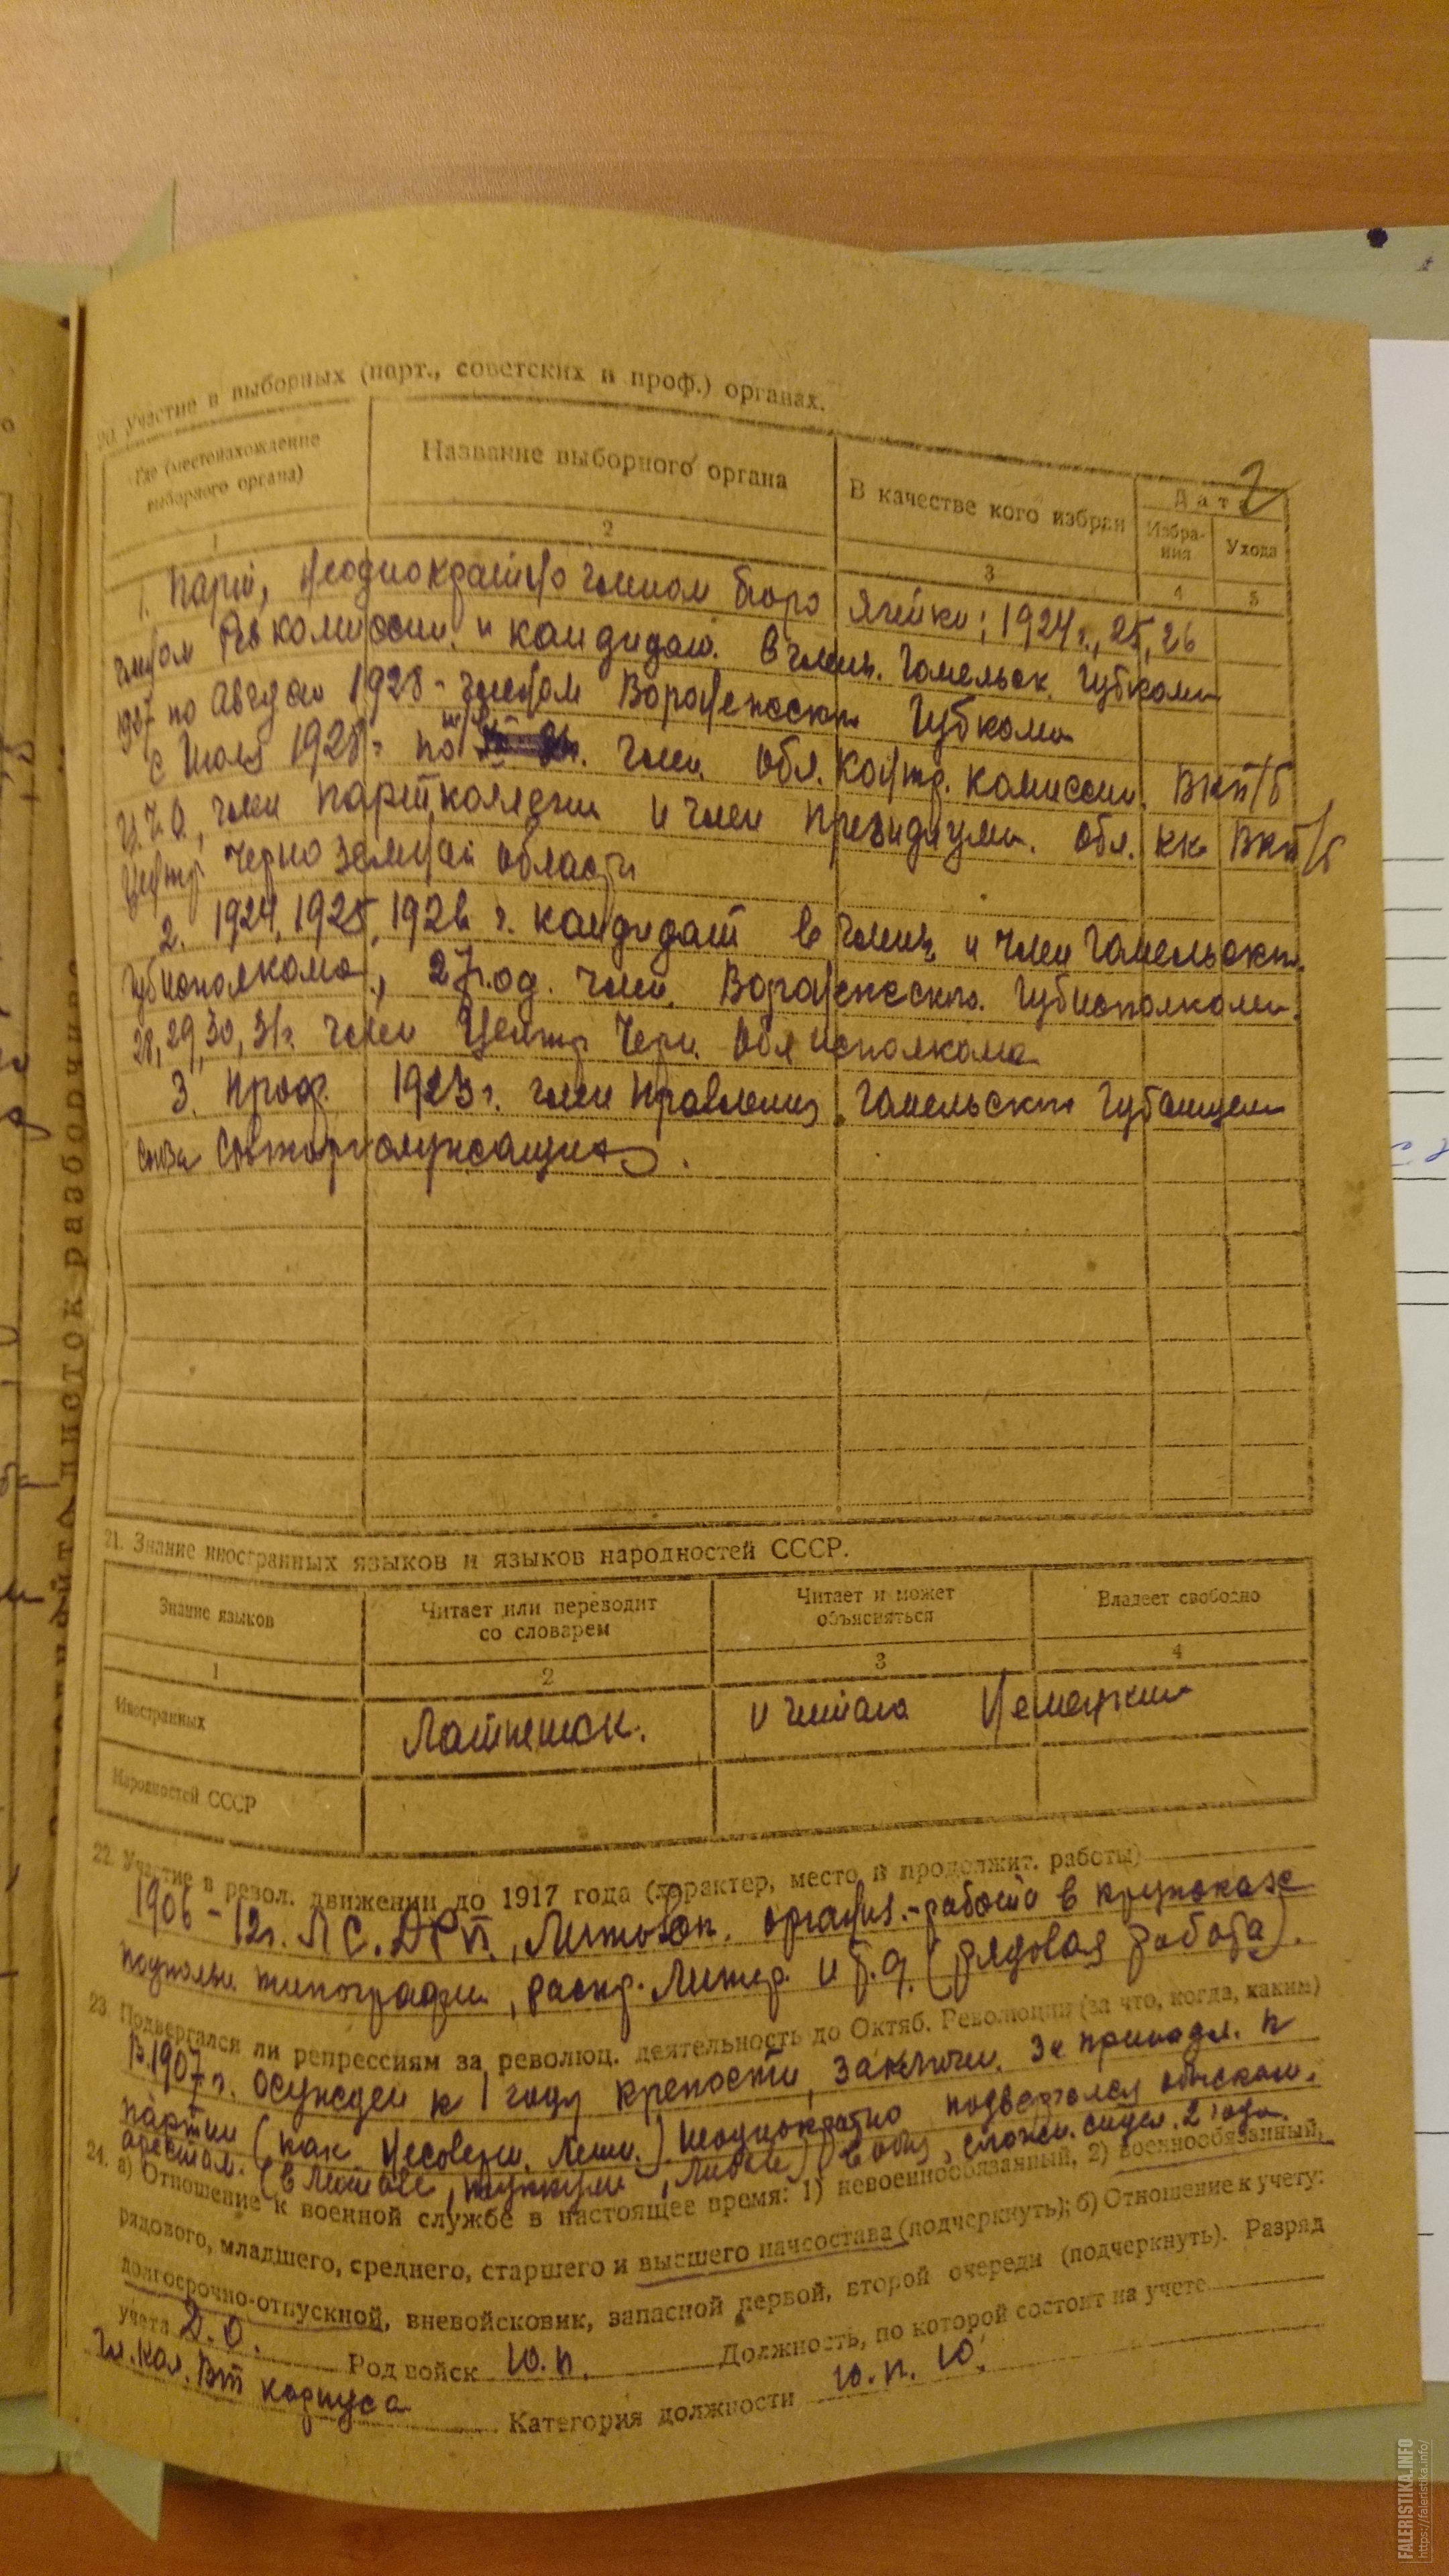 20. Участие в выборных (парт., советских и проф.) органах.
Где (местонахождение выборного органа)
Название выборного органа
В качестве кого избран
Дата
2
Избра-ния
Ухода
1
2
3
4
5
1. Парт, неоднократно членом бюро ячейки; 1924 г., 25, 26
членом Рев комиссии и кандидат. в члены. Гомельск. Губкома
1927 по Август 1928 - членом Воронежского Губкома
с Июля 1928 г. по член. Обл. Контр. комиссии ВКП/б
Ц.Ч.О., член парткollегии и член Президиума. Обл. КК ВКП/б
Центр. Черноземной области
2. 1924, 1925, 1926 г. кандидат в члены и член Гомельск.
Губисполкома, 27 год. член. Воронежского. Губисполкома.
28, 29, 30, 31 г. член Центр Черн. Облисполкома
3. Проф. 1923 г. член Правления Гомельского
союза Совторгслужащих.
21. Знание иностранных языков и языков народностей СССР.
Знание языков
Читает или переводит со словарем
Читает и может объясняться
Владеет свободно
1
2
3
4
Иностранных
Латышск.
и читаю
Немецкий
Народностей СССР
22. Участие в револ. движении до 1917 года (характер, место и продолжит. работы)
1906 - 12 г. Л С.ДРП., Литовск. организ. - работа в кружках
подпольн. типография, распр. Литер. и т.д. (рядовая работа).
23. Подвергался ли репрессиям за революц. деятельность до Октяб. Революции (за что, когда, каким)
В 1907 г. осужден к 1 году крепости, заключен. за принадл. к
партии (как несовершен. ). неоднократно подвергался обыскам.
арестам. (в Митаве, , Либаве) в общ. сложн. сидел 2 года.
24. а) Отношение к военной службе в настоящее время: 1) невоеннообязанный, 2) военнообязанный,
рядового, младшего, среднего, старшего и высшего начсостава (подчеркнуть); б) Отношение к учету:
долгосрочно-отпускной, вневойсковик, запасной первой, второй очереди (подчеркнуть). Разряд
учета Д.О. Род войск Ю.П. Должность, по которой состоит на учете
корпуса Категория должности
FALERISTIKA.INFO
https://faleristika.info/